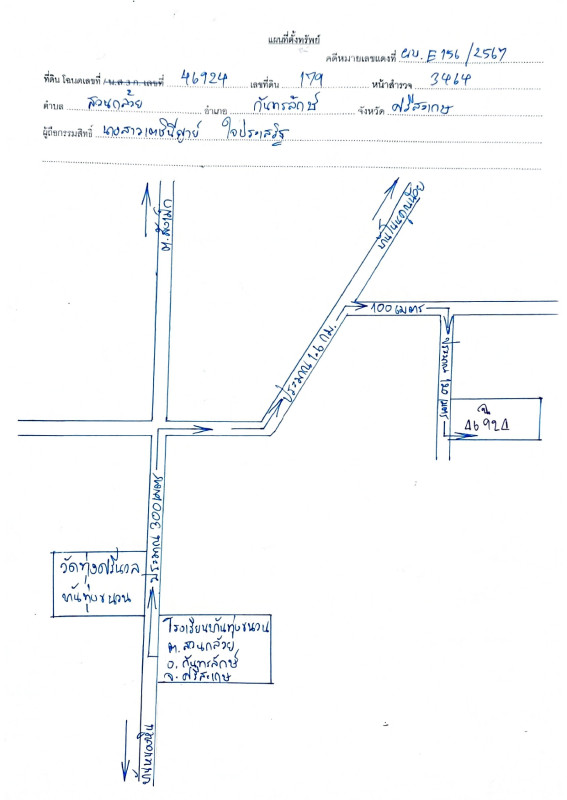 แผนที่ตั้งทรัพย์
คดีหมายเลขแดงที่ ผบ.E156/2567
ที่ดิน โฉนดเลขที่ / น.ส.3ก. เลขที่ 46924 เลขที่ดิน 179 หน้าสำรวจ 3464
ตำบล สวนกล้วย อำเภอ กันทรลักษ์ จังหวัด ศรีสะเกษ
ผู้ถือกรรมสิทธิ์ นางสาว ใจประเสริฐ
100 เมตร
ประมาณ 1.6 กม.
ประมาณ 130 เมตร
ฉ.
46924
ประมาณ 300 เมตร
วัดทุ่งศรีนวล
บ้านทุ่งขนวน
โรงเรียนบ้านทุ่งขนวน
ต. สวนกล้วย
อ. กันทรลักษ์
จ. ศรีสะเกษ
บ้านหนองหิน